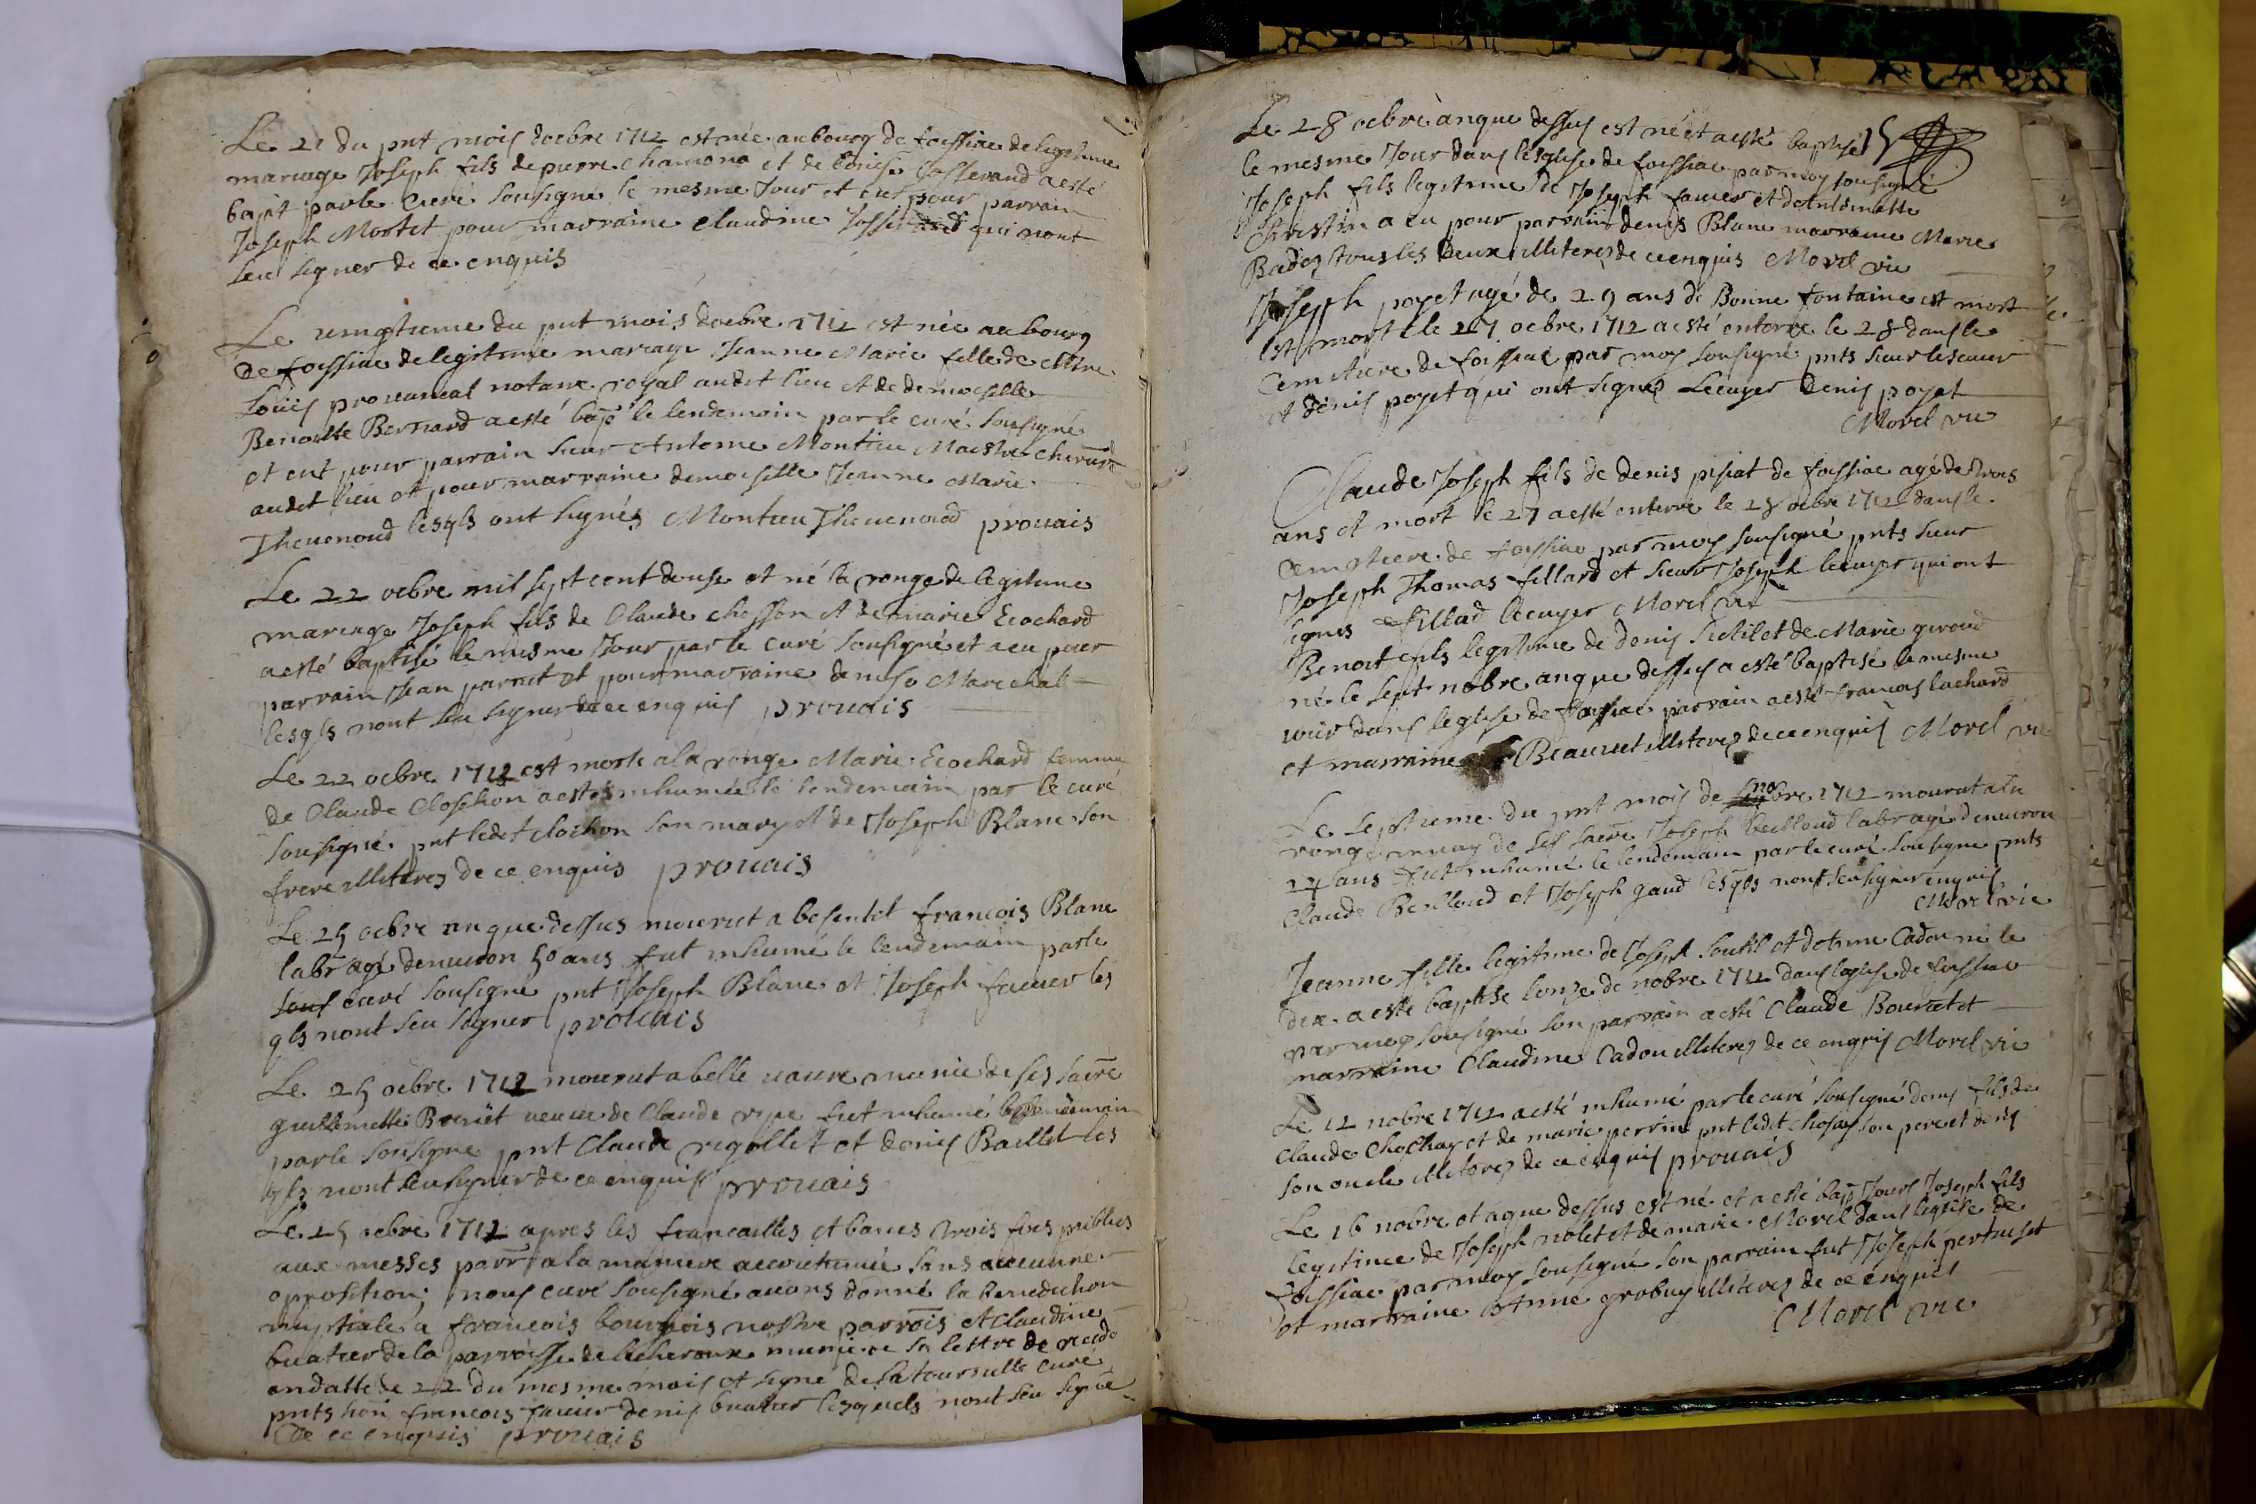 Le 21 du pnt mois doebre 1712 est née au bourg de foissiac de legitime
mariage Joseph fils de pierre chamona et de Josserand a esté
bapt par le Curé sousigné le mesme Jour et eut pour parrain
Joseph Mortet pour marraine claudine Josserand qui nont
seu signer de ce enquis
Le vingtieme du pnt mois doebre 1712 est née au bourg
de foissiac de legitime mariage Jeanne Marie fille de Mtre
Loüis prouuancal notaire royal audit lieu et de demoiselle
Benoitte Bernard a esté bap le lendemain par le curé sousigné
et eut pour parrain sieur Antoine Montieu Maistre
audit lieu et pour marraine demoiselle Jeanne Marie
Theuenoud lesqls ont signés Montieu Theuenoud prouais
Le 22 oebre mil sept cent douse et né la ronge de legitime
mariage Joseph fils de Claude chosson et de marie Ecochard
a esté baptisé le mesme Jour par le curé sousigné et a eu pour
parrain Jean parrut et pour marraine denise Marechal
lesqls nont seu signer de ce enquis prouais
Le 22 oebre 1712 est morte a la ronge Marie Ecochard femme
de Claude Closchon a esté inhumée le lendemain par le curé
sousigné pnt ledit clochon son mary et de Joseph Blanc son
frere illiterez de ce enquis prouais
Le 25 oebre an que dessus mourut a besentet francois Blanc
labr agé denuiron 50 ans fut inhumé le lendemain par le
sous curé sousigné pnt Joseph Blanc et Joseph fauier les
qls nont seu signer prouais
Le 25 oebre 1712 mourut a belle vaure munie de ses sacre
guillemette Benuët veuue de Claude fut inhumé le lendemain
par le sousigné pnt Claude rigollet et denis Baillet les
qls nont seu signer de ce enquis prouais
Le 25 oebre 1712 apres les fiancailles et bancs trois fois publies
aux messes parr a la maniere accoutumée sans aucunne
opposition; nous curé sousigné auons donné la benediction
nuptiale a francois bourgeois nostre parrois et Claudine
buatier de la parroisse de lescheroux munie de sa lettre de recede
en datte de 22 du mesme mois et signé de la tournelle curé
pnts hon francois fauier denis buatier lesquels nont seu signer
de ce enquis prouais
Le 28 oebre an que dessus est né et a esté baptisé 15
le mesme Jour dans lesglise de foissiac par moy sousigné
Joseph fils legitime de Joseph fauier et
Christin a eu pour parrain denis Blanc marraine Marie
Badez tous les deux illiterez de ce enquis Morel vic
Joseph poyet agé de 29 ans de Bonne fontaine est mort
est mort le 27 oebre 1712 a esté enterré le 28 dans le
Cemetiere de foissiac par moy sousigné pnts sieur lescuier
et denis poyet qui ont signez Lecuyer Denis poyet
Morel vic
Claude Joseph fils de denis pisiat de foissiac agé de trois
ans et mort le 27 a esté enterré le 28 oebre 1712 dans le
cemetiere de foissiac par moy sousigné pnts sieur
Joseph Thomas fillard et sieur Joseph lecuyer qui ont
signés fillad lecuyer Morel vic
Benoit fils legitime de denis et de Marie giroud
né le sept nobre an que dessus a esté baptisé le mesme
Jour dans leglise de foissiac parrain a esté francois lachard
et marraine Beauuet illiterez de ce enquis Morel vic
Le septieme du pnt mois de nobre 1712 mourut a la
ronge muny de ses sacre Joseph beilloud labr agé denuiron
24 ans fut inhumé le lendemain par le curé sousigné pnts
Claude Beilloud et Joseph gaud lesqls nont seu signer enquis
Morel vic
Jeanne fille legitime de Joseph soutil et detiene Cadou né le
dix a esté baptisé lonze de nobre 1712 dans leglise de foissiac
par moy sousigné son parrain a esté Claude Bourcet et
marraine Claudine Cadou illiterez de ce enquis Morel vic
Le 12 nobre 1712 a esté inhumé par le curé sousigné denis fils de
Claude Chochas et de marie perrin pnt ledit chosas son pere et denis
son oncle illiterez de ce enquis prouais
Le 16 nobre et a que dessus est né et a esté bap Jours Joseph fils
legitime de Joseph nolet et de marie Morel dans leglise de
foissiac par moy sousigné son parrain fut Joseph pertuiset
et marraine Anne grobuy illiterez de ce enquis
Morel vic